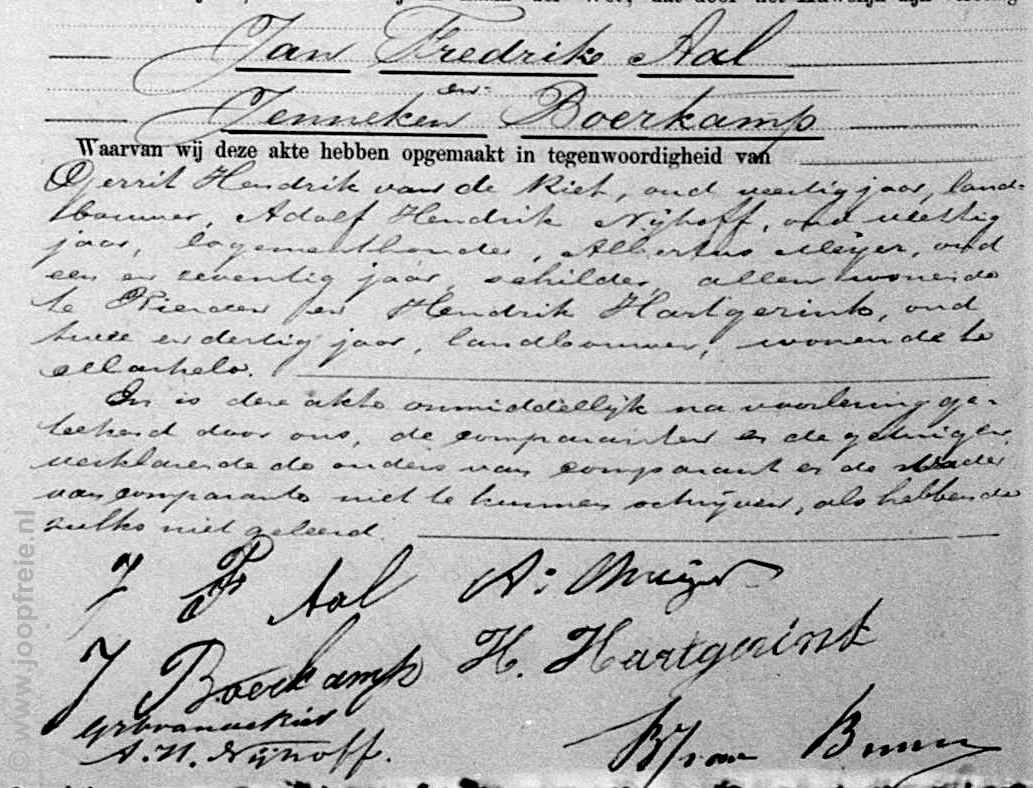 Jan Fredrik Aal
en
Jenneken Boerkamp
Waarvan wij deze akte hebben opgemaakt in tegenwoordigheid van
Gerrit Hendrik van de Riet, oud veertig jaar, land=
bouwer, Adolf Hendrik Nijhoff, oud
jaar, logementhouder, Albertus Meijer, oud
een en zeventig jaar, schilder, allen wonende
te en Hendrik Hartgerink, oud
twee en dertig jaar, landbouwer, wonende te
Markelo.
En is deze akte onmiddellijk na voorlezing ge-
teekend door ons, de comparanten en de getuigen,
verklarende de ouders van comparant en de
van comparante niet te kunnen schrijven, als hebbende
zulks niet geleerd.
J F Aal A: Meijer
J Boerkamp H. Hartgerink
A. H. Nijhoff.
© www.joopfreie.nl